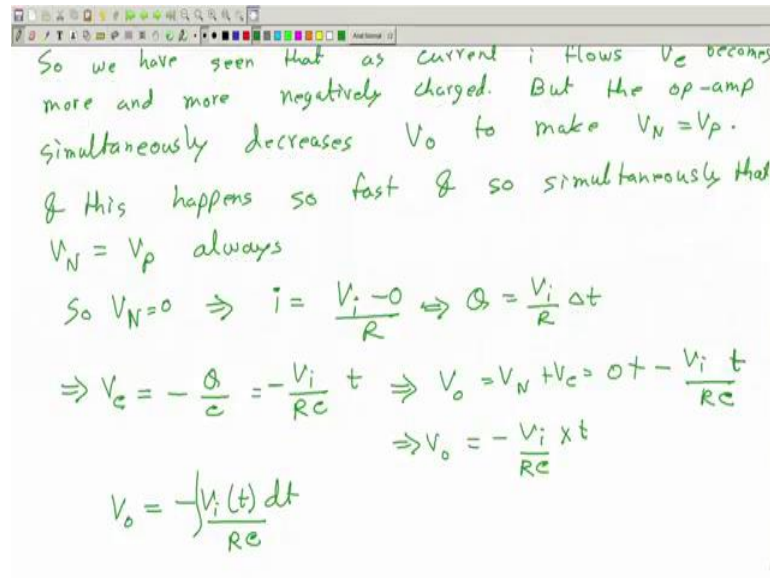 So we have seen that as current i flows Vc becomes
more and more negatively charged. But the op-amp
simultaneously decreases Vo to make VN = VP.
& this happens so fast & so simultaneously that
VN = VP always
So VN=0 ⇒ i = (Vi - 0)/R ⇔ Q = Vi/R Δt
⇒ Vc = - Q/C = - Vi/RC t ⇒ Vo = VN + Vc = 0 + - Vi t/RC
⇒ Vo = - Vi/RC × t
Vo = -∫ Vi(t) dt/RC